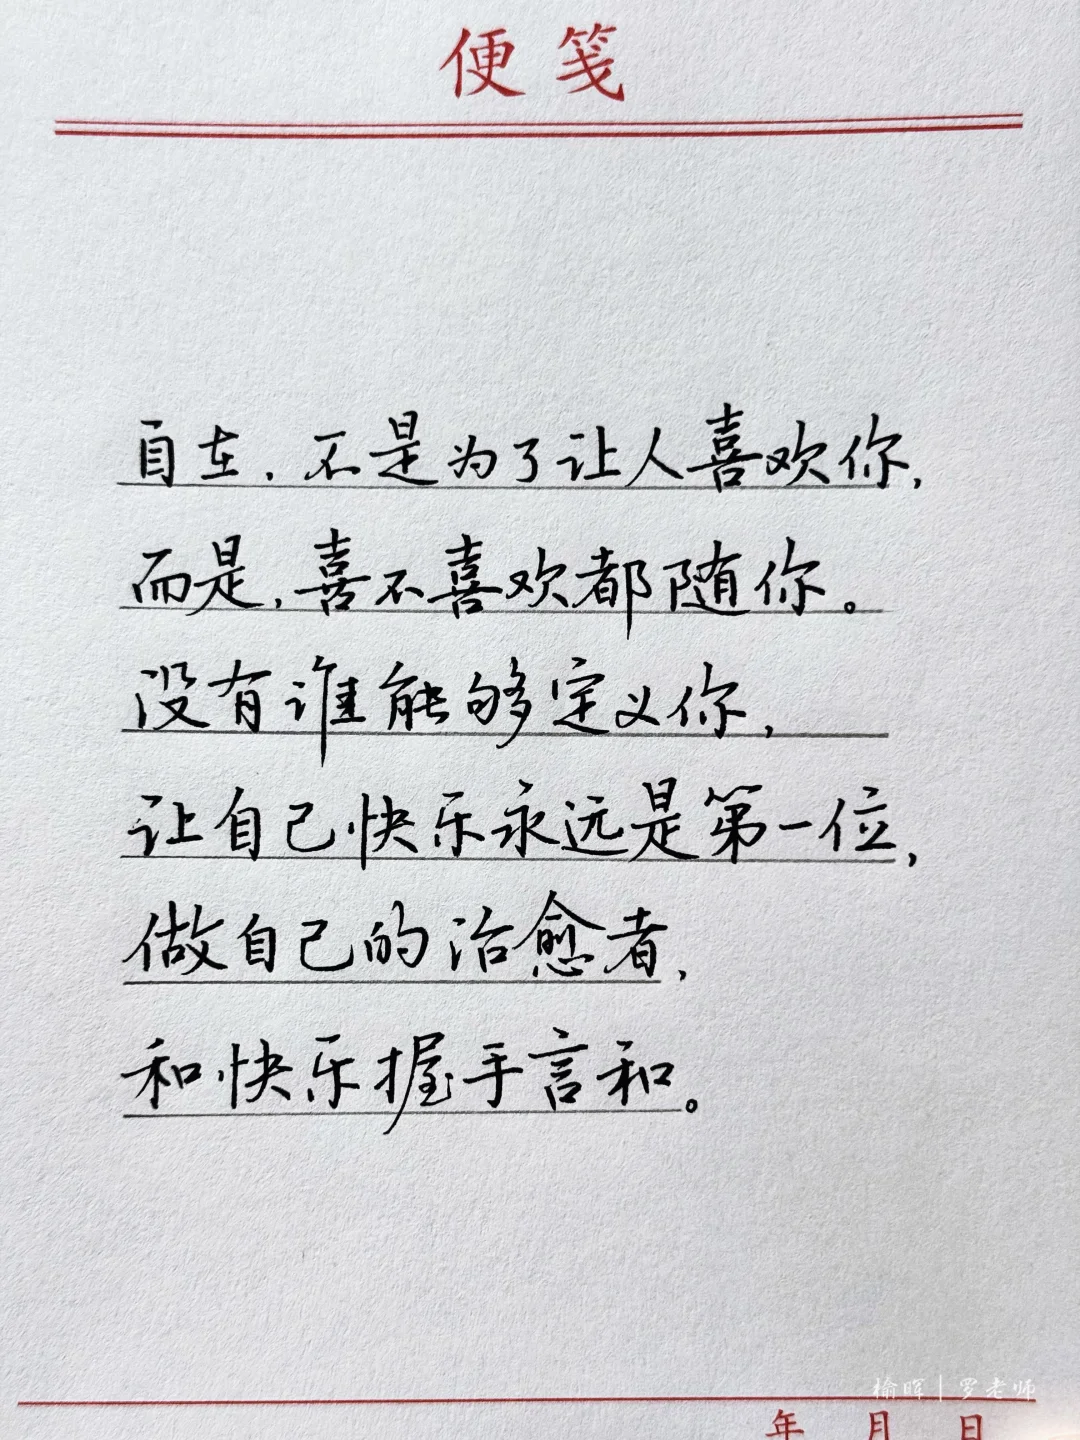 便笺
自在，不是为了让人喜欢你，
而是，喜不喜欢都随你。
没有谁能够定义你，
让自己快乐永远是第一位，
做自己的治愈者，
和快乐握手言和。
榆晖｜罗老师
年 月 日